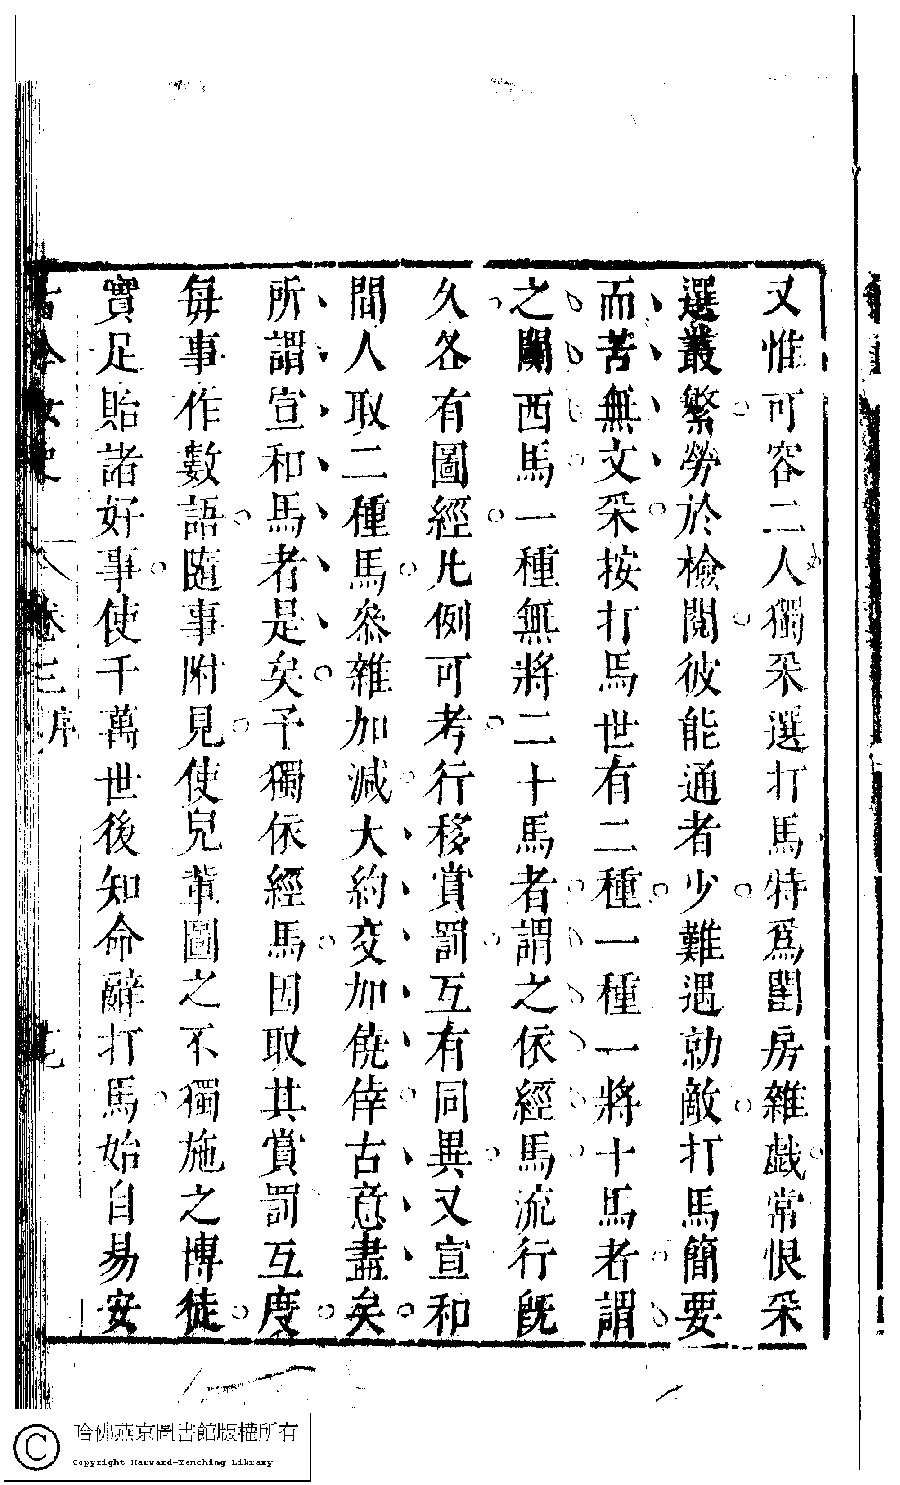 又惟可容二人獨采選打馬特爲閨房雜戲常恨采
選叢繁勞於檢閱彼能通者少難遇勍敵打馬簡要
而苦無文采按打馬世有二種一種一將十馬者謂
之關西馬一種無將二十馬者謂之依經馬流行旣
久各有圖經凡例可考行移賞罰互有同異又宣和
間人取二種馬叅雜加減大約交加僥倖古意盡矣
所謂宣和馬者是矣予獨依經馬因取其賞罰互度
每事作數語隨事附見使兒輩圖之不獨施之博徒
實足貽諸好事使千萬世後知命辭打馬始自易安
古今女史 卷三序
哈佛燕京圖書館版權所有
Copyright Harvard-Yenching Library